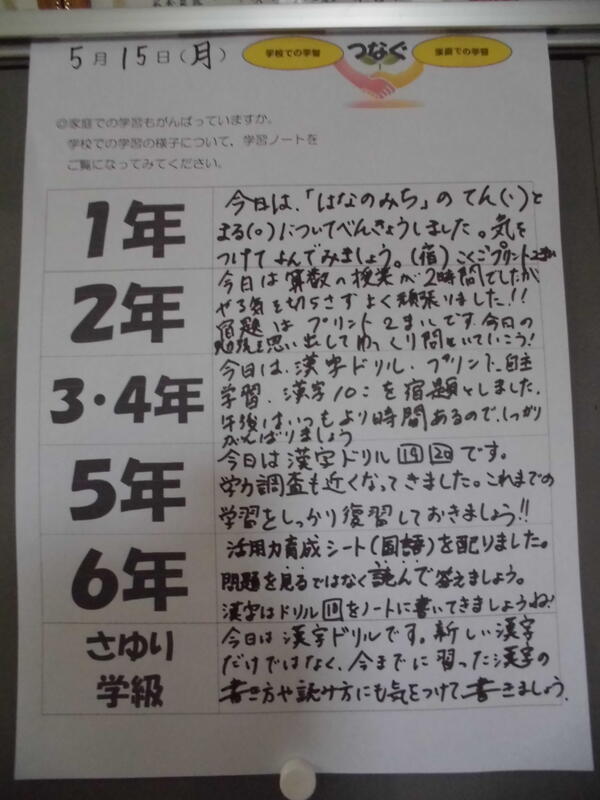 5月15日(月)
学校での学習 つなぐ 家庭での学習
◎家庭での学習もがんばっていますか。
学校での学習の様子について、学習ノートを
ご覧になってみてください。
1年
今日は、「はなのみち」の てん(、)と
まる(。)についてべんきょうしました。気を
つけて よんでみましょう。(宿)こくごプリント2まい
2年
今日は算数の授業が2時間でしたが
やる気を切らさず よく頑張りました!!
宿題は プリント2まいです。今日の
勉強を思い出してゆっくり問といていこう!
3・4年
今日は、漢字ドリル・プリント、自主
学習、漢字10こを宿題としました。
午後はいつもより時間あるので、しっかり
がんばりましょう
5年
今日は漢字ドリル 19 20 です。
学力調査も近くなってきました。これまでの
学習をしっかり復習しておきましょう!!
6年
活用力育成シート(国語)を配りました。
問題を見るではなく読んで答えましょう。
漢字はドリル 18 をノートに書いてきましょうね!
さゆり
学級
今日は漢字ドリルです。新しい漢字
だけではなく、今までに習った漢字の
書き方や読み方にも気をつけて書きましょう。